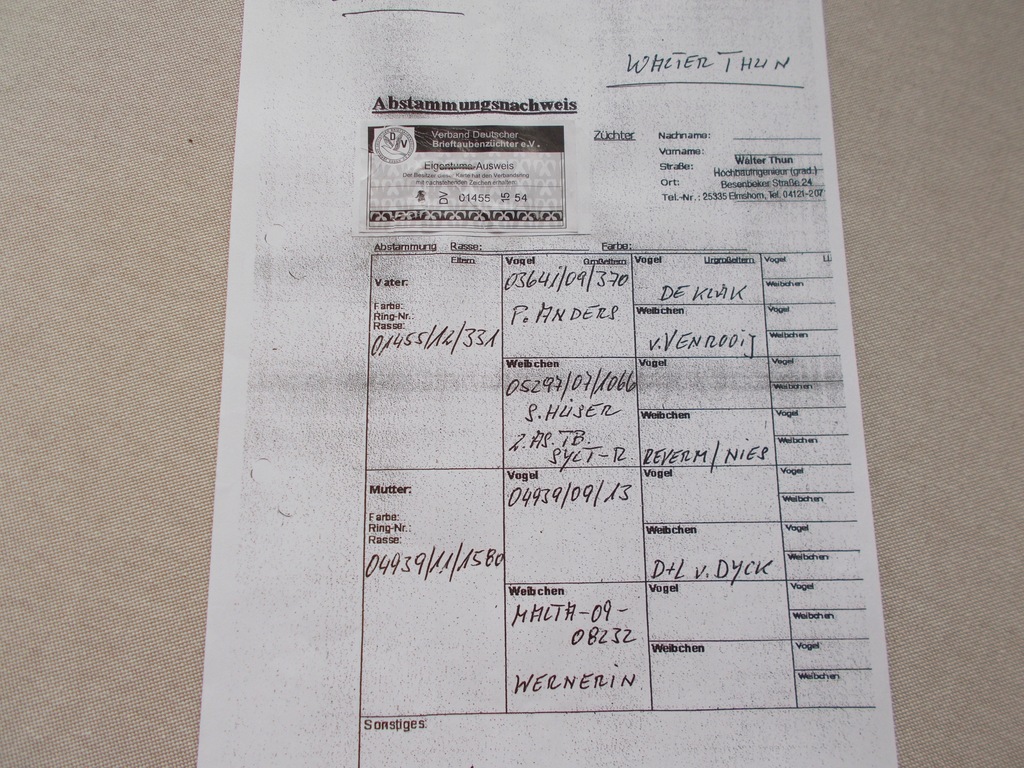 WALTER THUN
Abstammungsnachweis
Verband Deutscher
Brieftaubenzüchter e.V.
Eigentums-Ausweis
Der Besitzer dieser Karte hat den Verbandsring
mit nachstehenden Zeichen erhalten:
DV 01455 15 54
Züchter
Nachname:
Vorname:
Straße:
Ort:
Tel.-Nr.:
Walter Thun
Hochbauingenieur (grad.)
Besenbeker Straße 24
25335 Elmshorn, Tel. 04121-207
Abstammung Rasse: Farbe:
Eltern
Vater:
Farbe:
Ring-Nr.:
Rasse:
01455/12/331
Mutter:
Farbe:
Ring-Nr.:
Rasse:
04939/11/1580
Vogel Großeltern
03641/09/370
P. ANDERS
Weibchen
05297/07/1066
S. HÜSER
2. AS. TB.
SYLT-R
Vogel
04939/09/13
Weibchen
MALTA-09-
08232
WERNERIN
Vogel Urgroßeltern
DE KLAK
Weibchen
v. VENROOIJ
Vogel
Weibchen
REVERM/NIES
Vogel
Weibchen
D+L v. DYCK
Vogel
Weibchen
Vogel
Weibchen
Vogel
Weibchen
Vogel
Weibchen
Vogel
Weibchen
Vogel
Weibchen
Vogel
Weibchen
Vogel
Weibchen
Vogel
Weibchen
Sonstiges: